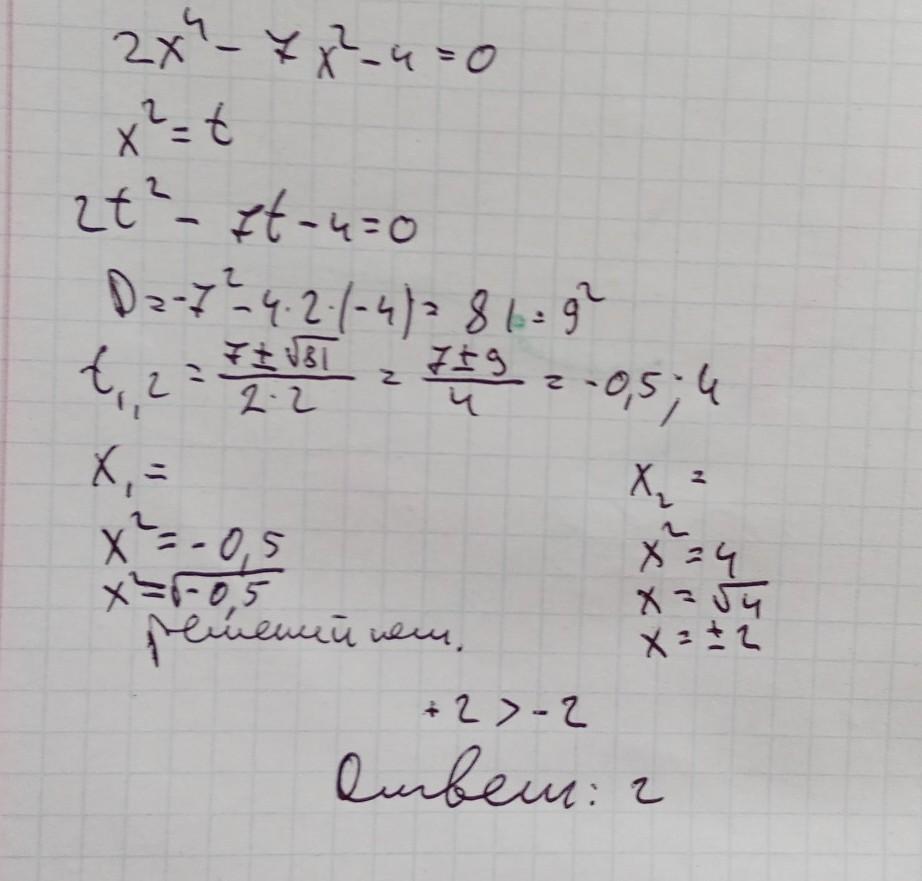 2x⁴ - 7x² - 4 = 0
x² = t
2t² - 7t - 4 = 0
D = -7² - 4·2·(-4) = 81 = 9²
t₁,₂ = (7 ± √81)/(2·2) = (7 ± 9)/4 = -0,5; 4
x₁ =
x₂ =
x² = -0,5
x² = 4
x² = √-0,5
x = √4
решений нет.
x = ±2
+2 > -2
Ответ: 2